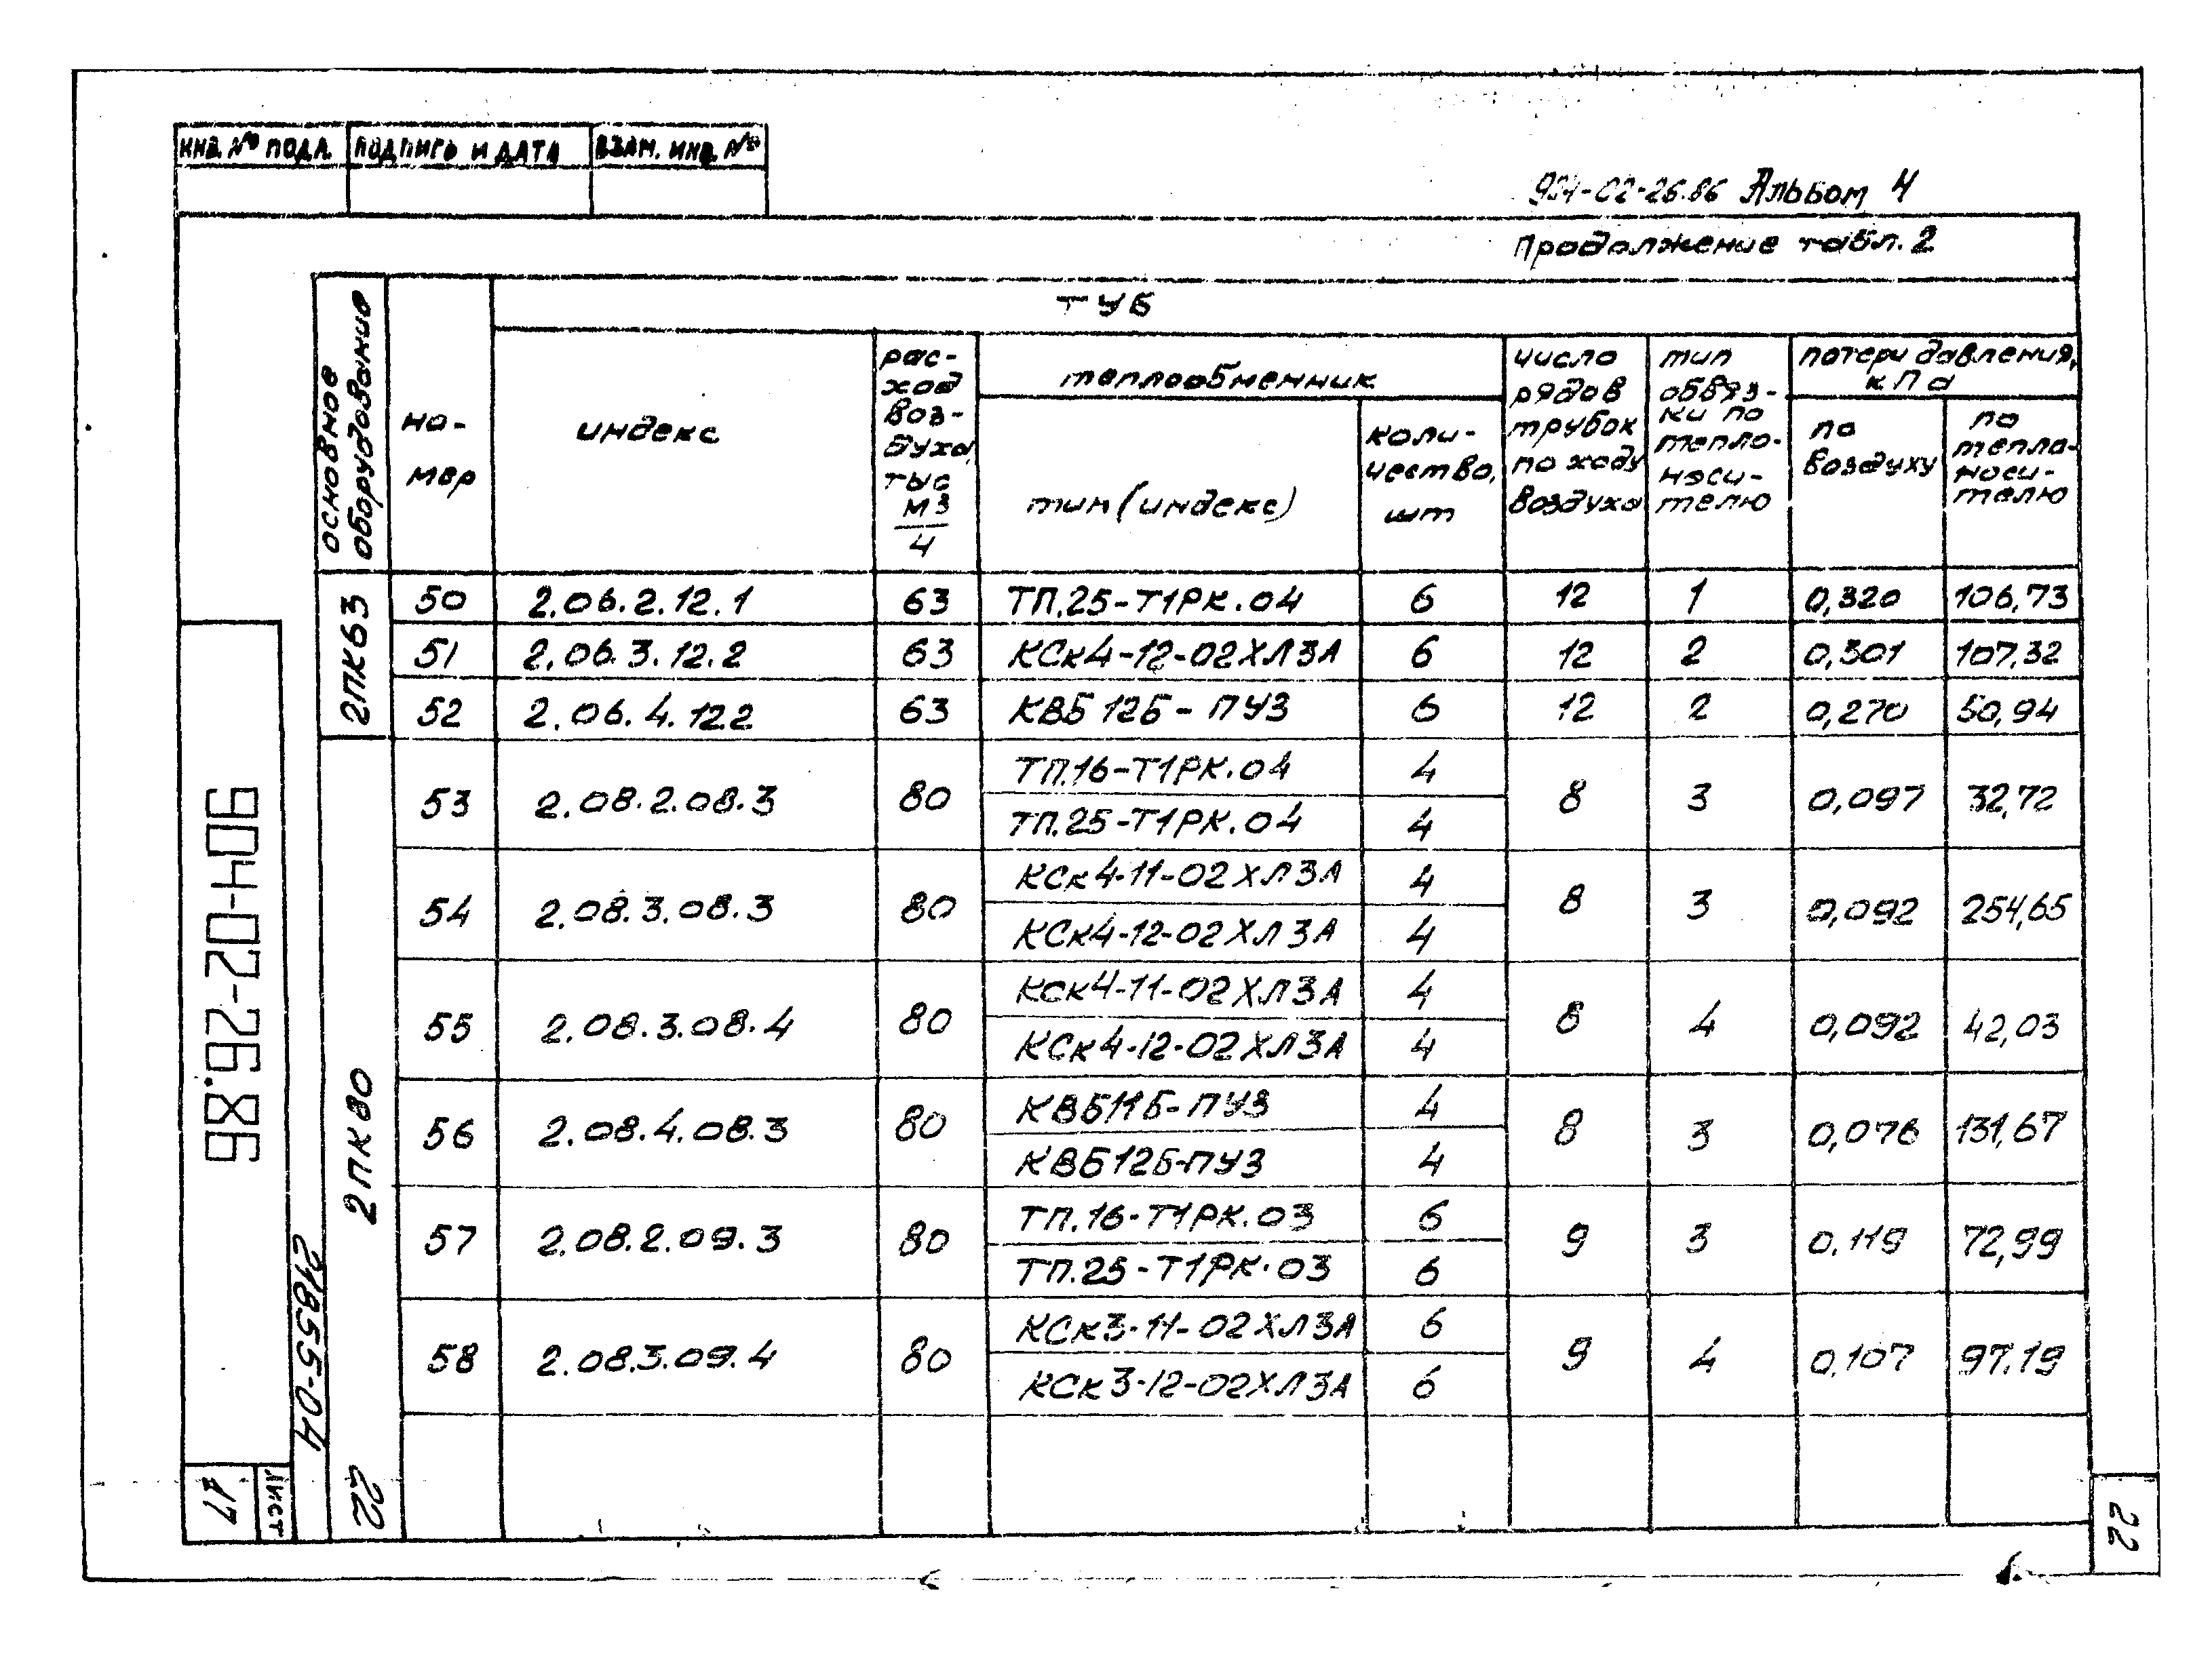 ИНВ. № ПОДЛ. ПОДПИСЬ И ДАТА ВЗАМ. ИНВ. №
904-02-26.86 Альбом 4
Продолжение табл. 2
основное оборудование
но-
мер
ТУБ
индекс
рас-
ход
воз-
духа,
тыс
м3
ч
теплообменник
тип (индекс)
коли-
чество,
шт
число
рядов
трубок
по ходу
воздуха
тип
обвяз-
ки по
тепло-
носи-
телю
потери давления,
кПа
по
воздуху
по
тепло-
носи-
телю
2ПК63
50 2.06.2.12.1 63 ТП.25-Т1РК.04 6 12 1 0,320 106,73
51 2.06.3.12.2 63 КСк4-12-02ХЛ3А 6 12 2 0,301 107,32
52 2.06.4.12.2 63 КВБ12Б-ПУЗ 6 12 2 0,270 50,94
2ПК80
53 2.08.2.08.3 80 ТП.16-Т1РК.04 4 8 3 0,097 32,72
ТП.25-Т1РК.04 4
54 2.08.3.08.3 80 КСк4-11-02ХЛ3А 4 8 3 0,092 254,65
КСк4-12-02ХЛ3А 4
55 2.08.3.08.4 80 КСк4-11-02ХЛ3А 4 8 4 0,092 42,03
КСк4-12-02ХЛ3А 4
56 2.08.4.08.3 80 КВБ11Б-ПУЗ 4 8 3 0,076 131,67
КВБ12Б-ПУЗ 4
57 2.08.2.09.3 80 ТП.16-Т1РК.03 6 9 3 0.119 72,99
ТП.25-Т1РК.03 6
58 2.08.3.09.4 80 КСк3-11-02ХЛ3А 6 9 4 0.107 97.19
КСк3-12-02ХЛ3А 6
904-02-26.86
21855-04
22
Лист
17
22